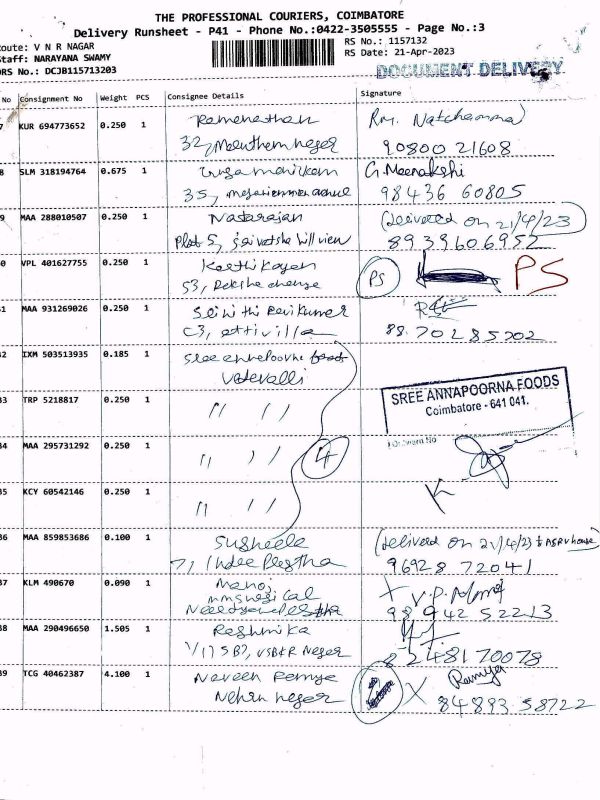 THE PROFESSIONAL COURIERS, COIMBATORE
Delivery Runsheet - P41 - Phone No.:0422-3505555 - Page No.:3
oute: V N R NAGAR
RS No.: 1157132
Staff: NARAYANA SWAMY
RS Date: 21-Apr-2023
DRS No.: DCJB115713203
DOCUMENT DELIVERY
No Consignment No Weight PCS Consignee Details Signature
7 KUR 694773652 0.250 1 Ramanathan Rm. Natchammal
32, nager 90800 21608
8 SLM 318194764 0.675 1 G. Meenakshi
35, 98436 60805
9 MAA 288010507 0.250 1 Natarajan (delivered on 21/4/23)
Plot 5, srivatsha hill view 8939606952
0 VPL 401627755 0.250 1 Keethikayan PS PS
S3,
1 MAA 931269026 0.250 1 Ravikumar
C3, 88 70285202
2 IXM 503513935 0.185 1 Sree
Vadavalli
SREE ANNAPOORNA FOODS
Coimbatore - 641 041.
3 TRP 5218817 0.250 1 " "
4 MAA 295731292 0.250 1 " " 4
5 KCY 60542146 0.250 1 " "
6 MAA 859853686 0.100 1 Susheela (delivered on 21/4/23
7, 96928 72041
7 KLM 490670 0.090 1 Manoj
98942 52213
8 MAA 290496650 1.505 1 Reshmika
VSBKR Nager 8248170078
9 TCG 40462387 4.100 1 Naveen Remya X Ramya
Nehru nager 84893 58722